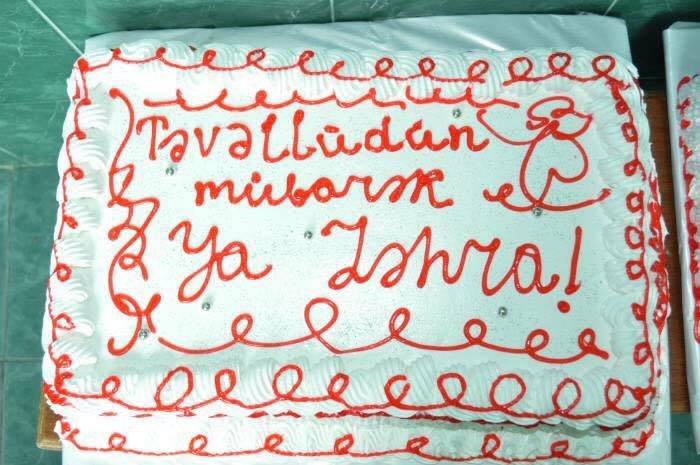 Təvəllüdün
mübarək
Ya Zəhra!